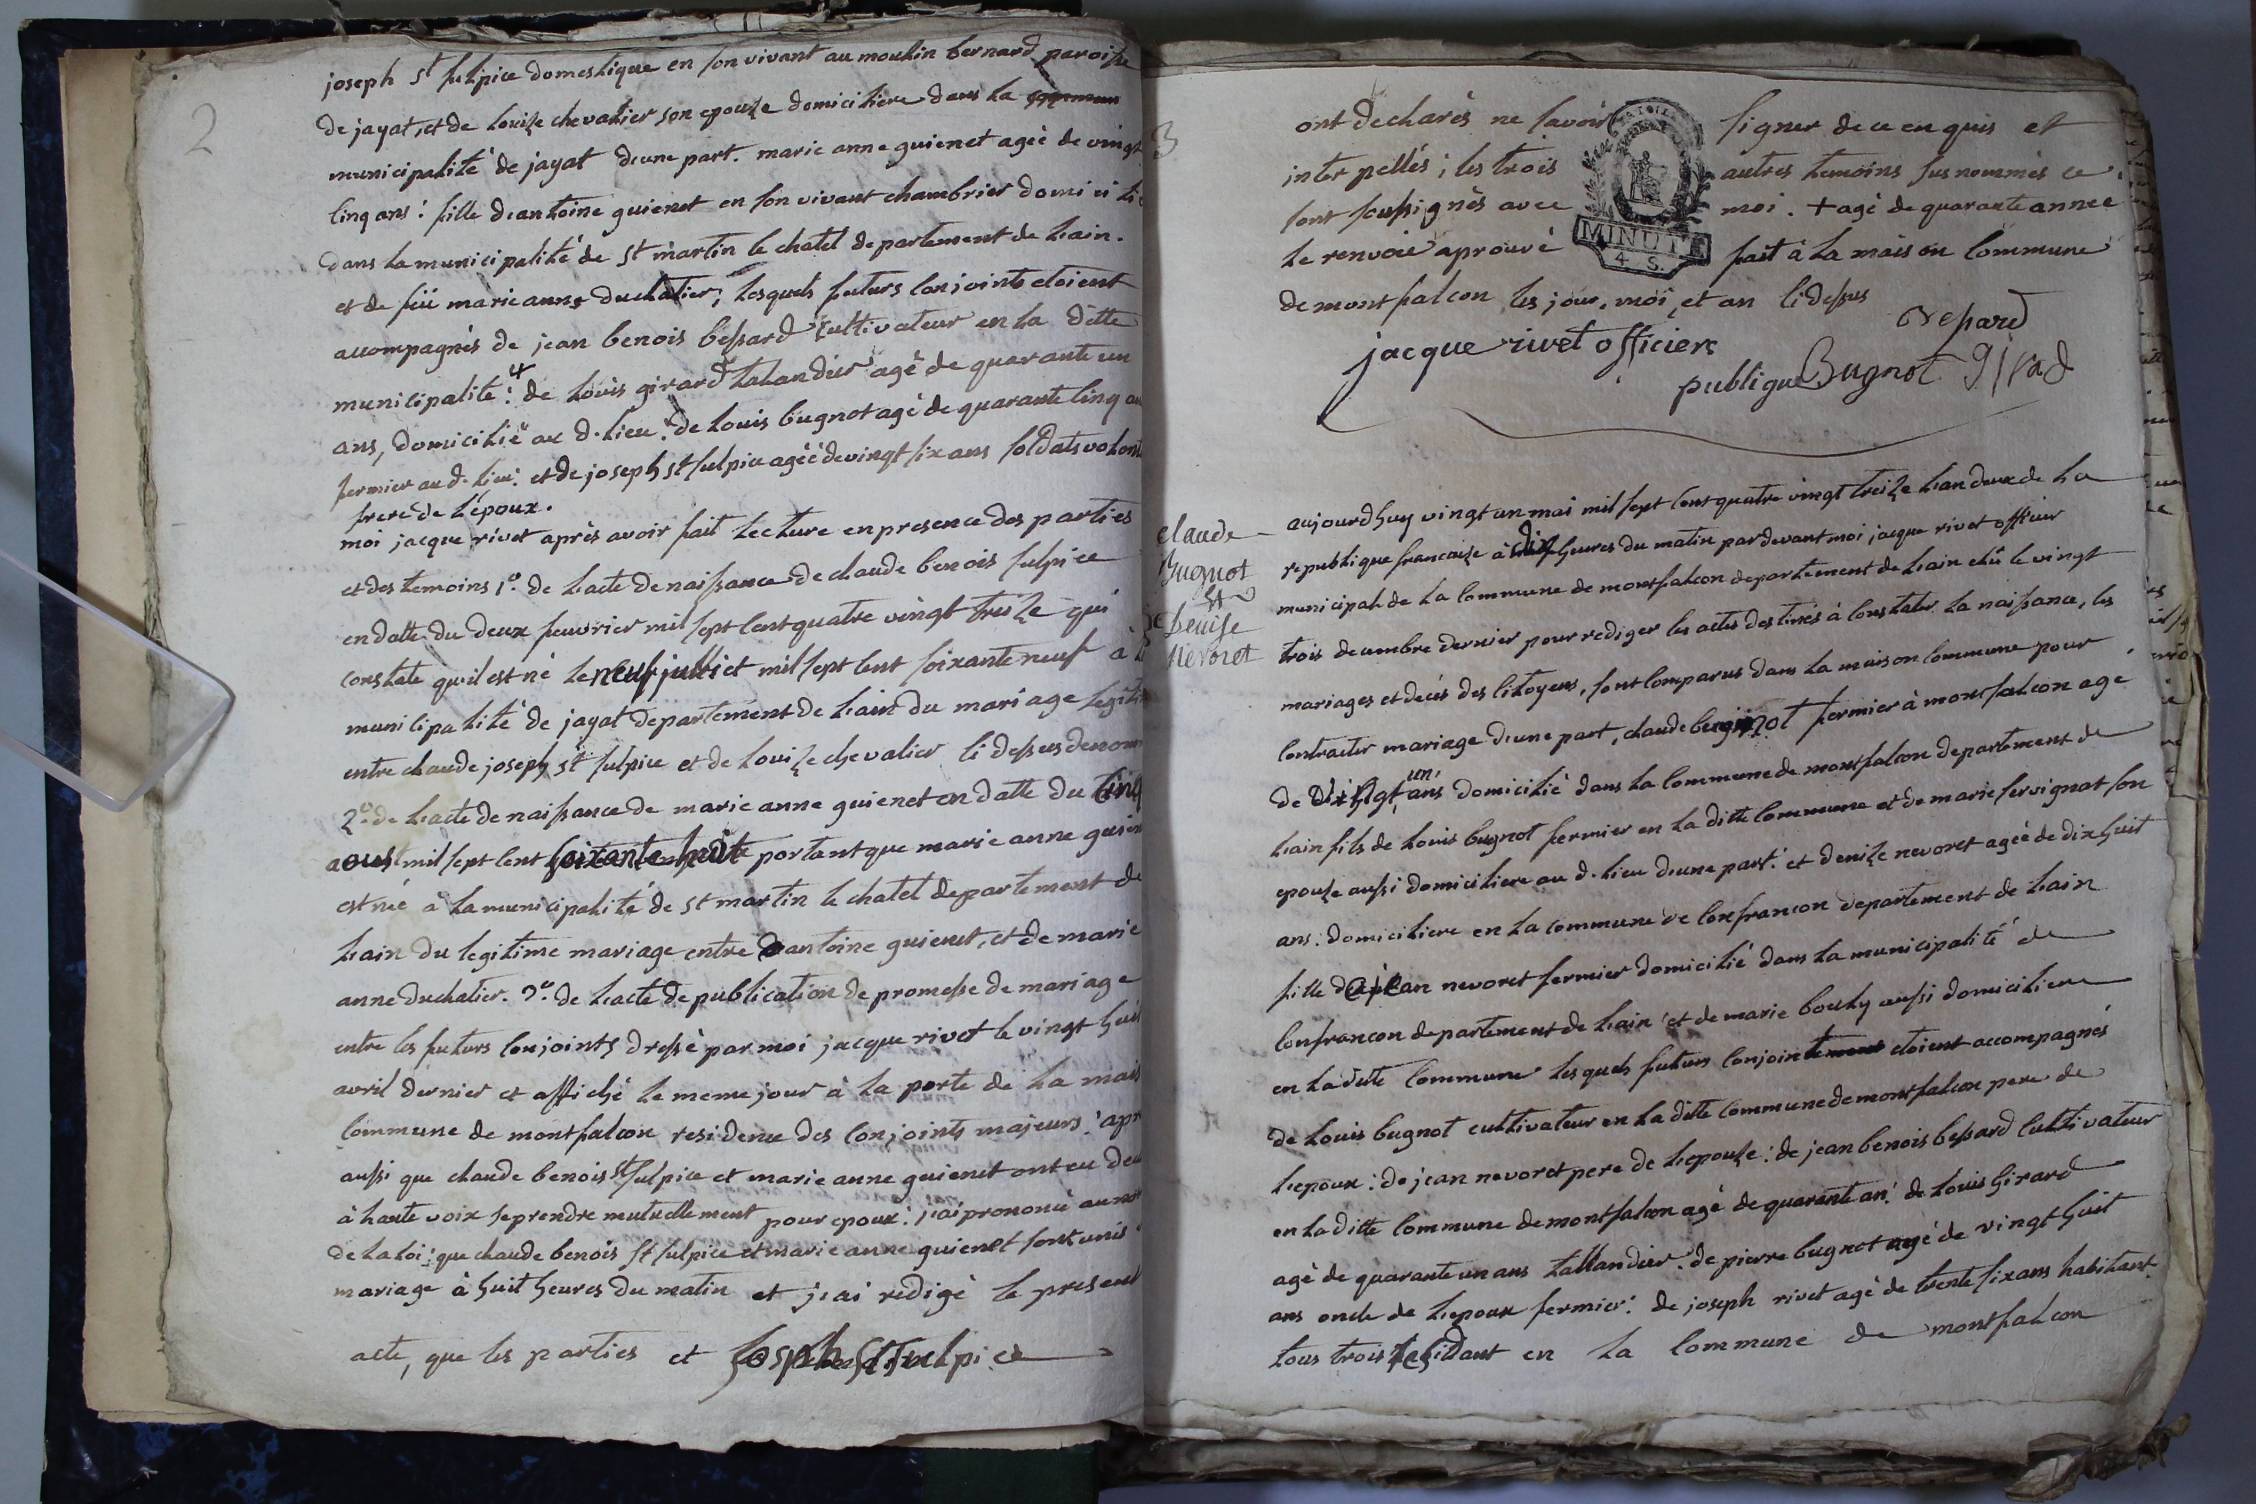 2
joseph st sulpice domestique en son vivant au moulin bernard paroisse
de jayat, et de Louise chevalier son epouze domiciliere dans la
municipalité de jayat d'une part. marie anne guienet agée de vingt
cinq ans: fille d'antoine guienet en son vivant chambrier domicilié
dans la municipalité de st martin le chatel departement de l'ain.
et de füe marie anne duchatier; lesquels futurs conjoints etoient
accompagnés de jean benois bessard cultivateur en la ditte
municipalité: + de Louis girard tallandier agé de quarante un
ans, domicilié au d. lieu: de Louis bugnot agé de quarante cinq ans
fermier au d. lieu: et de joseph st sulpice agéé de vingt six ans soldats
frere de l'époux.
moi jacque rivet après avoir fait lecture en presence des parties
et des temoins 1º. de l'acte de naissance de claude benois sulpice
en datte du deux feuvrier mil sept cent quatre vingt treize qui
constate qu'il est né le neuf juillet mil sept cent soixante neuf à la
municipalité de jayat departement de l'ain du mariage
entre claude joseph st sulpice et de Louise chevalier ci dessus
2º. de l'acte de naissance de marie anne guienet en datte du cinq
aoust mil sept cent soixante huit portant que marie anne guienet
est née a la municipalité de st martin le chatel departement de
l'ain du legitime mariage entre antoine guienet, et de marie
anne duchatier. 3º. de l'acte de publication de promesse de mariage
entre les futurs conjoints dressé par moi jacque rivet le vingt huit
avril dernier et affiché le meme jour à la porte de la
commune de montfalcon residence des conjoints majeurs: apre
aussi que claude benois st sulpice et marie anne guienet ont
à haute voix se prendre mutuellement pour epoux: j'ai prononcé au nom
de la loi: que claude benois st sulpice et marie anne guienet sont unis
mariage à huit heures du matin et j'ai redigé le present
acte, que les parties et joseph st sulpice
3
ont declarés ne savoir signer de ce en quis et
interpellés; les trois autres temoins sus nommés ce
sont soussignés avec moi. + agé de quarante annee
le renvoie aprouvé fait à la maison commune
MINUTE
4 S.
de montfalcon les jour, moi, et an ci dessus
Besard
jacque rivet officiers
publique Bugnot girad
claude
Bugnot
et
Denise
Nevoret
aujourdhuy vingt un mai mil sept cent quatre vingt treize l'an deux de la
republique francaise à dix heures du matin pardevant moi jacque rivet officier
municipal de la commune de montfalcon departement de l'ain elü le vingt
trois decembre dernier pour rediger les actes destinés à constater la naissance, les
mariages et decés des citoyens, sont comparus dans la maison commune pour
contracter mariage d'une part, claude bugnot fermier à montfalcon agé
de vingt un ans domicilié dans la commune de montfalcon departement de
l'ain fils de Louis bugnot fermier en la ditte commune et de marie servignat son
epouse aussi domiciliere au d. lieu d'une part: et denise nevoret agéé de dix huit
ans: domiciliere en la commune de confrancon departement de l'ain
fille de jean nevoret fermier domicilié dans la municipalité de
confrancon departement de l'ain et de marie bouhy aussi domiciliere
en la ditte commune lesquels futurs conjoint etoient accompagnés
de Louis bugnot cultivateur en la ditte commune de montfalcon pere de
l'epoux: de jean nevoret pere de l'epouse: de jean benois bessard cultivateur
en la ditte commune de montfalcon agé de quarante an: de Louis Girard
agé de quarante un ans tallandier: de pierre bugnot agé de vingt huit
ans oncle de l'epoux fermier: de joseph rivet agé de trente six ans habitant
tous trois residant en la commune de montfalcon